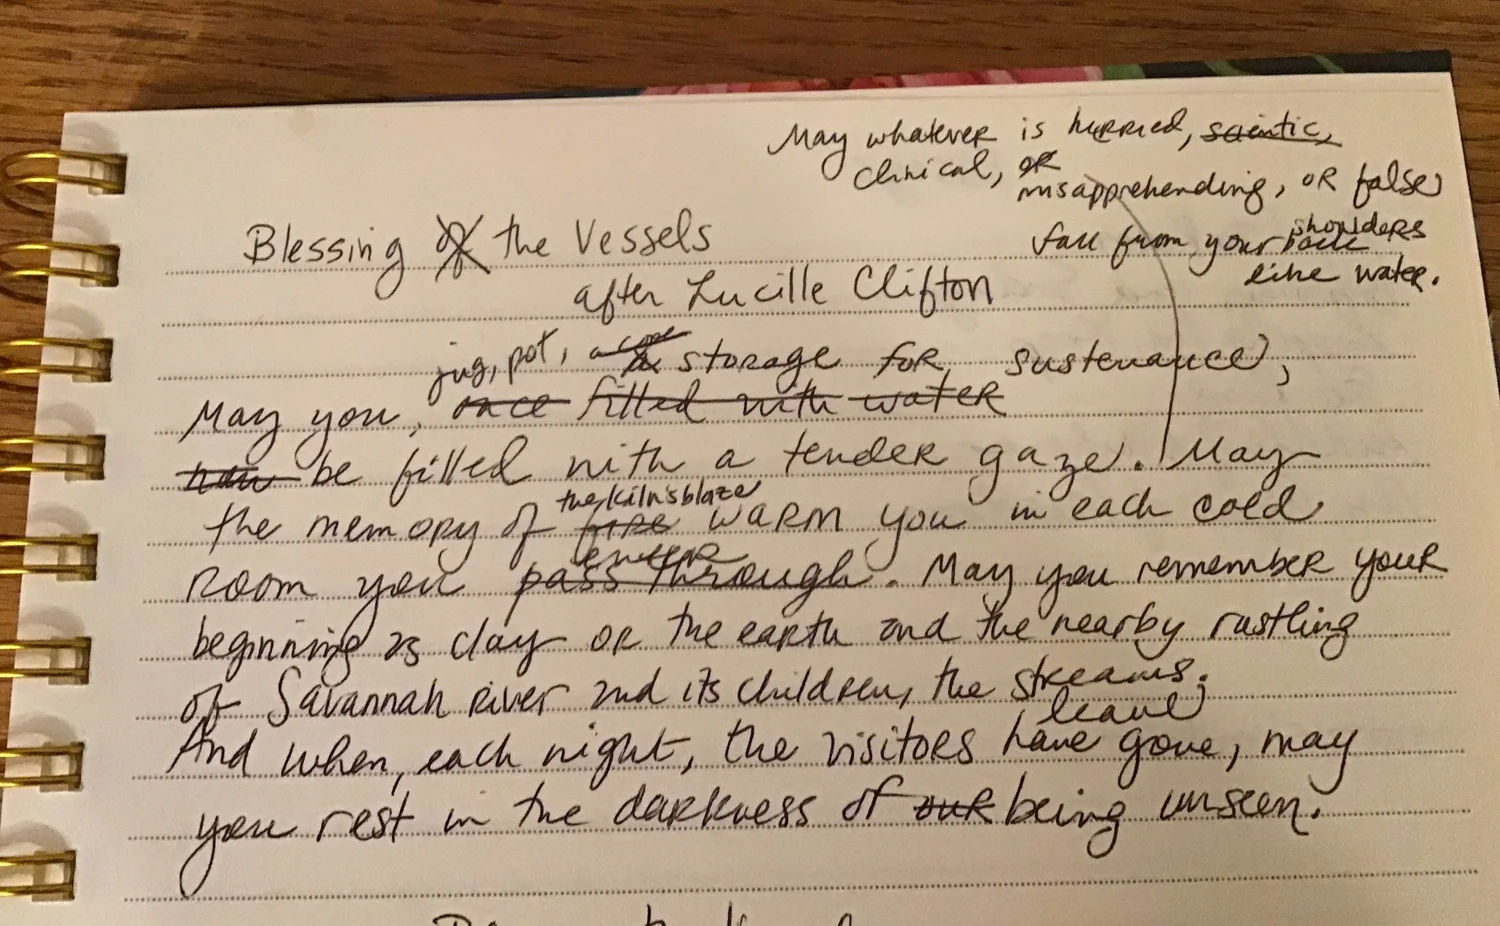 May whatever is hurried,
clinical, or
misapprehending, or false
fall from your back shoulders
like water.
Blessing of the Vessels
after Lucille Clifton
jug, pot, a storage for sustenance,
May you, once filled with water
now be filled with a tender gaze. May
the kiln's blaze
the memory of fire warm you in each cold
enter
room you pass through. May you remember your
beginning as clay or the earth and the nearby rustling
of Savannah River and its children, the streams.
leave
And when, each night, the visitors have gone, may
you rest in the darkness of our being unseen.